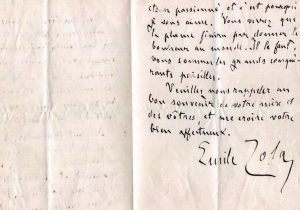 cœur passionné et c'est pourquoi
je vous aime. Vous verrez que
la plume finira par donner le
bonheur au monde. Il le faut,
vous sommes les grands conqué-
rants paisibles.
Veuillez nous rappeler au
bon souvenir de votre mère et
des vôtres, et me croire votre
bien affectueux.
Emile Zola